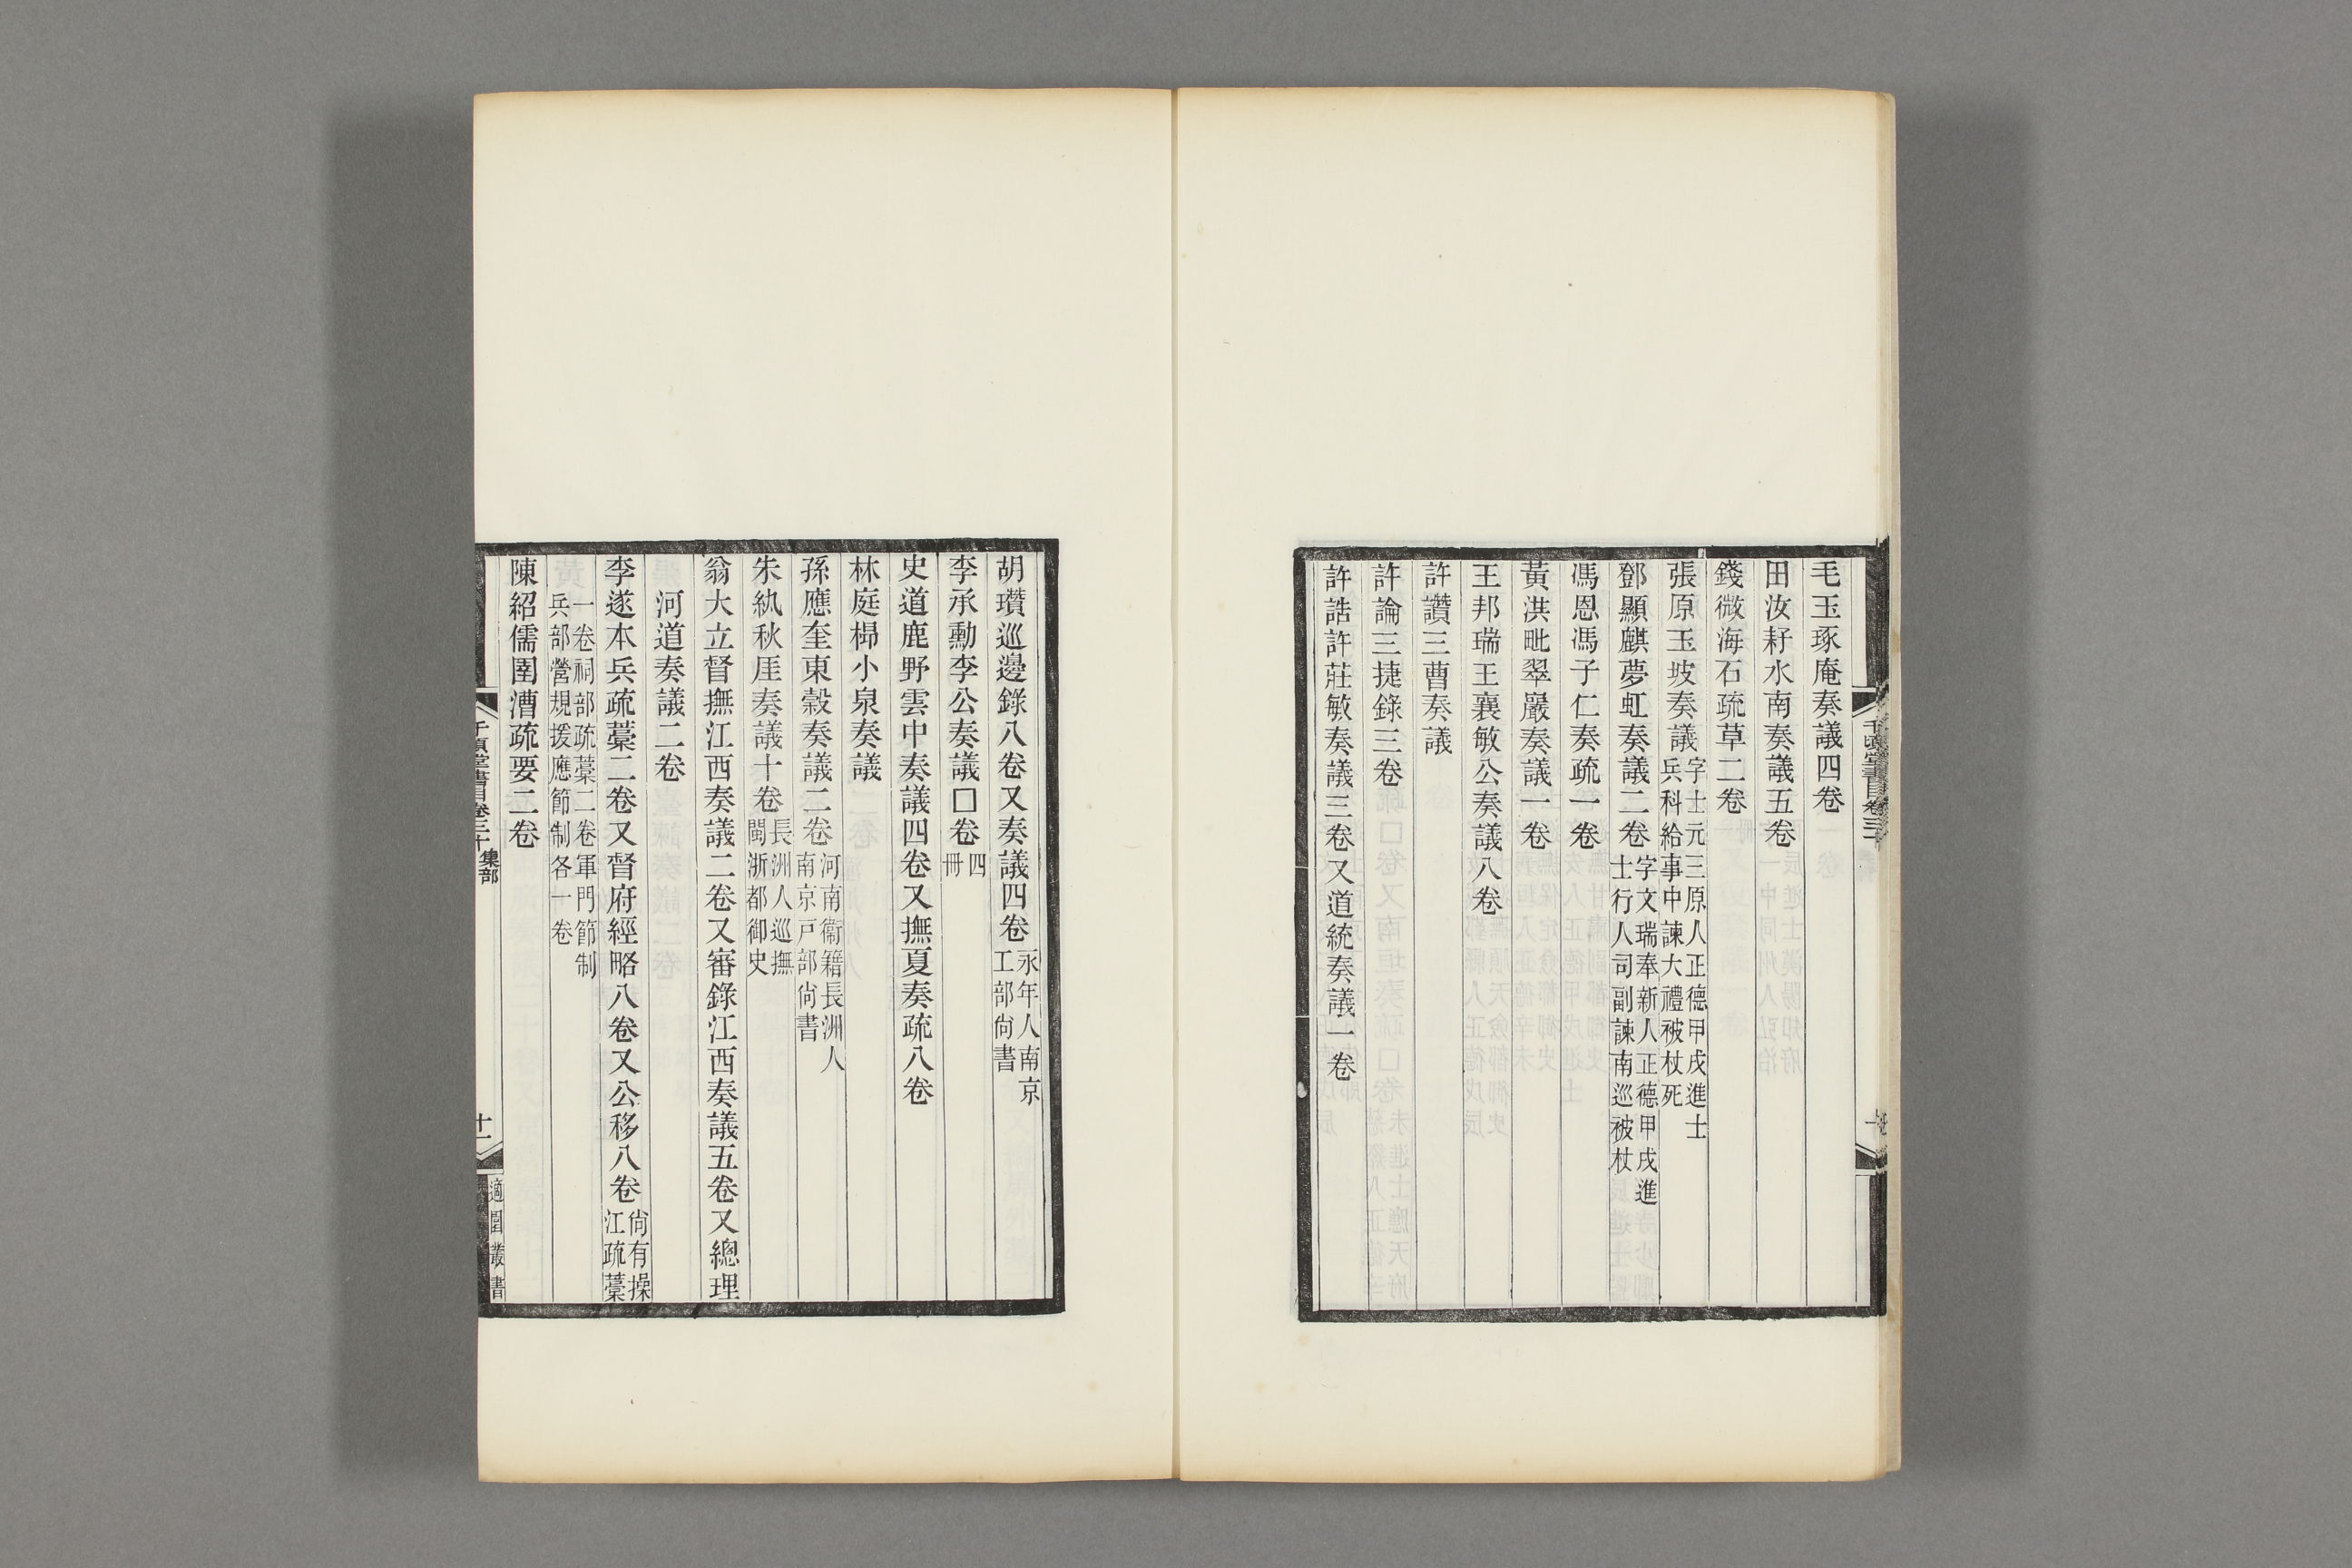 毛玉琢庵奏議四卷
田汝耔水南奏議五卷
錢微海石疏草二卷
張原玉坡奏議字士元三原人正德甲戌進士兵科給事中諫大禮被杖死
鄧顯麒夢虹奏議二卷字文瑞奉新人正德甲戌進士行人司副諫南巡被杖
馮恩馮子仁奏疏一卷
黃洪毗翠巖奏議一卷
王邦瑞王襄敏公奏議八卷
許讚三曹奏議
許論三捷錄三卷
許誥許莊敏奏議三卷又道統奏議一卷
胡瓚巡邊錄八卷又奏議四卷永年人南京工部尙書
李承勳李公奏議□卷四冊
史道鹿野雲中奏議四卷又撫夏奏疏八卷
林庭㭿小泉奏議
孫應奎東穀奏議二卷河南衞籍長洲人南京戸部尙書
朱紈秋厓奏議十卷長洲人巡撫閩浙都御史
翁大立督撫江西奏議二卷又審錄江西奏議五卷又總理
河道奏議二卷
李遂本兵疏藁二卷又督府經略八卷又公移八卷尙有操江疏藁
一卷祠部疏藁二卷軍門節制兵部營規援應節制各一卷
陳紹儒圉漕疏要二卷
千頃堂書目卷三十
集部
十一
適園叢書